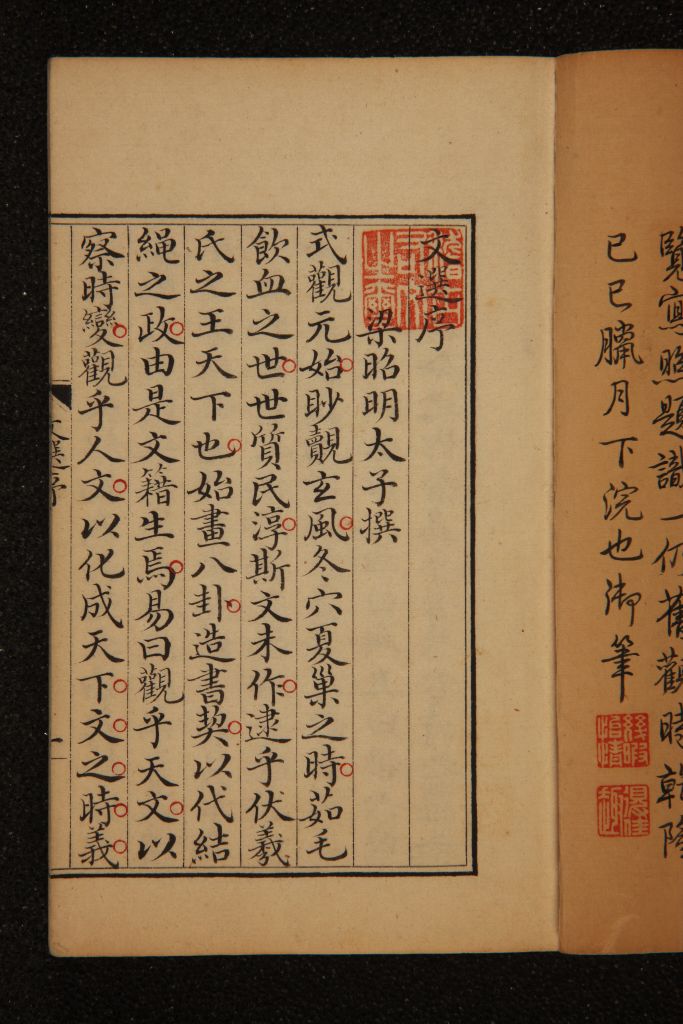 覽寫照題識一仍舊觀時乾隆
己巳臘月下浣也御筆
文選序
梁昭明太子撰
式觀元始眇覿玄風冬穴夏巢之時茹毛
飲血之世世質民淳斯文未作逮乎伏羲
氏之王天下也始畫八卦造書契以代結
繩之政由是文籍生焉易曰觀乎天文以
察時變觀乎人文以化成天下文之時義
文選序
一